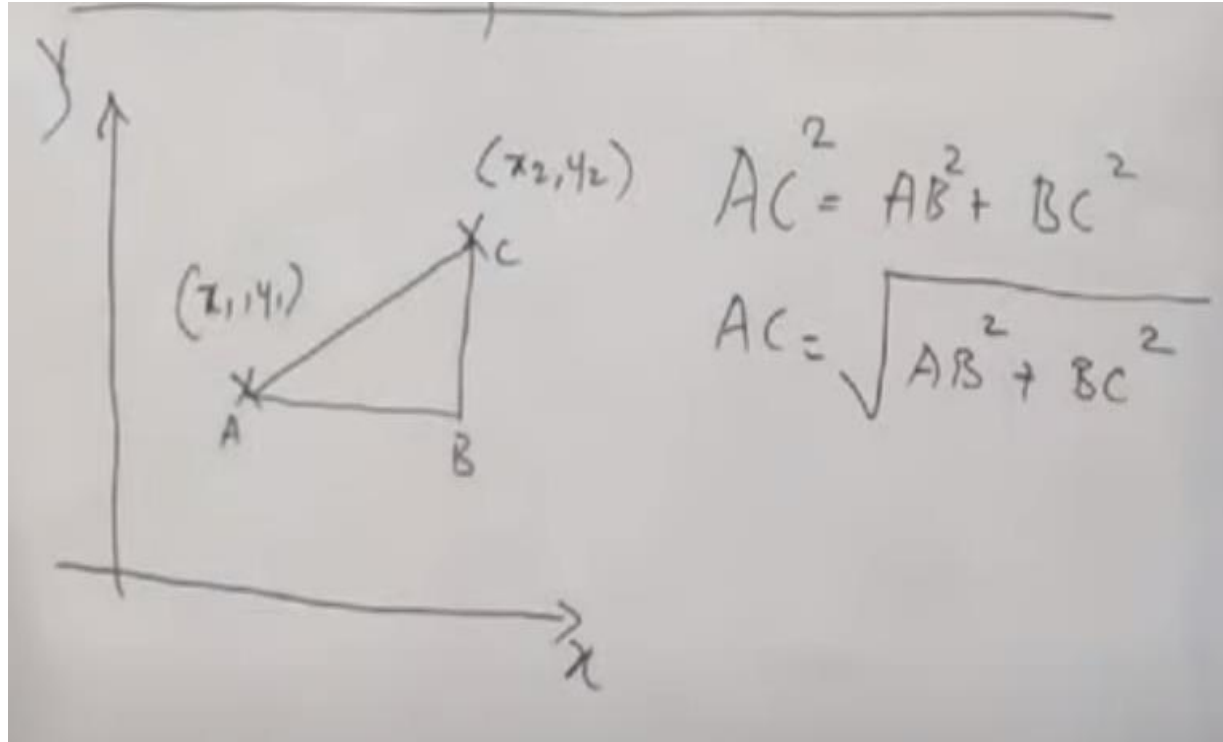 y
(x₂,y₂)
C
(x₁,y₁)
A
B
x
AC² = AB² + BC²
AC = √(AB² + BC²)